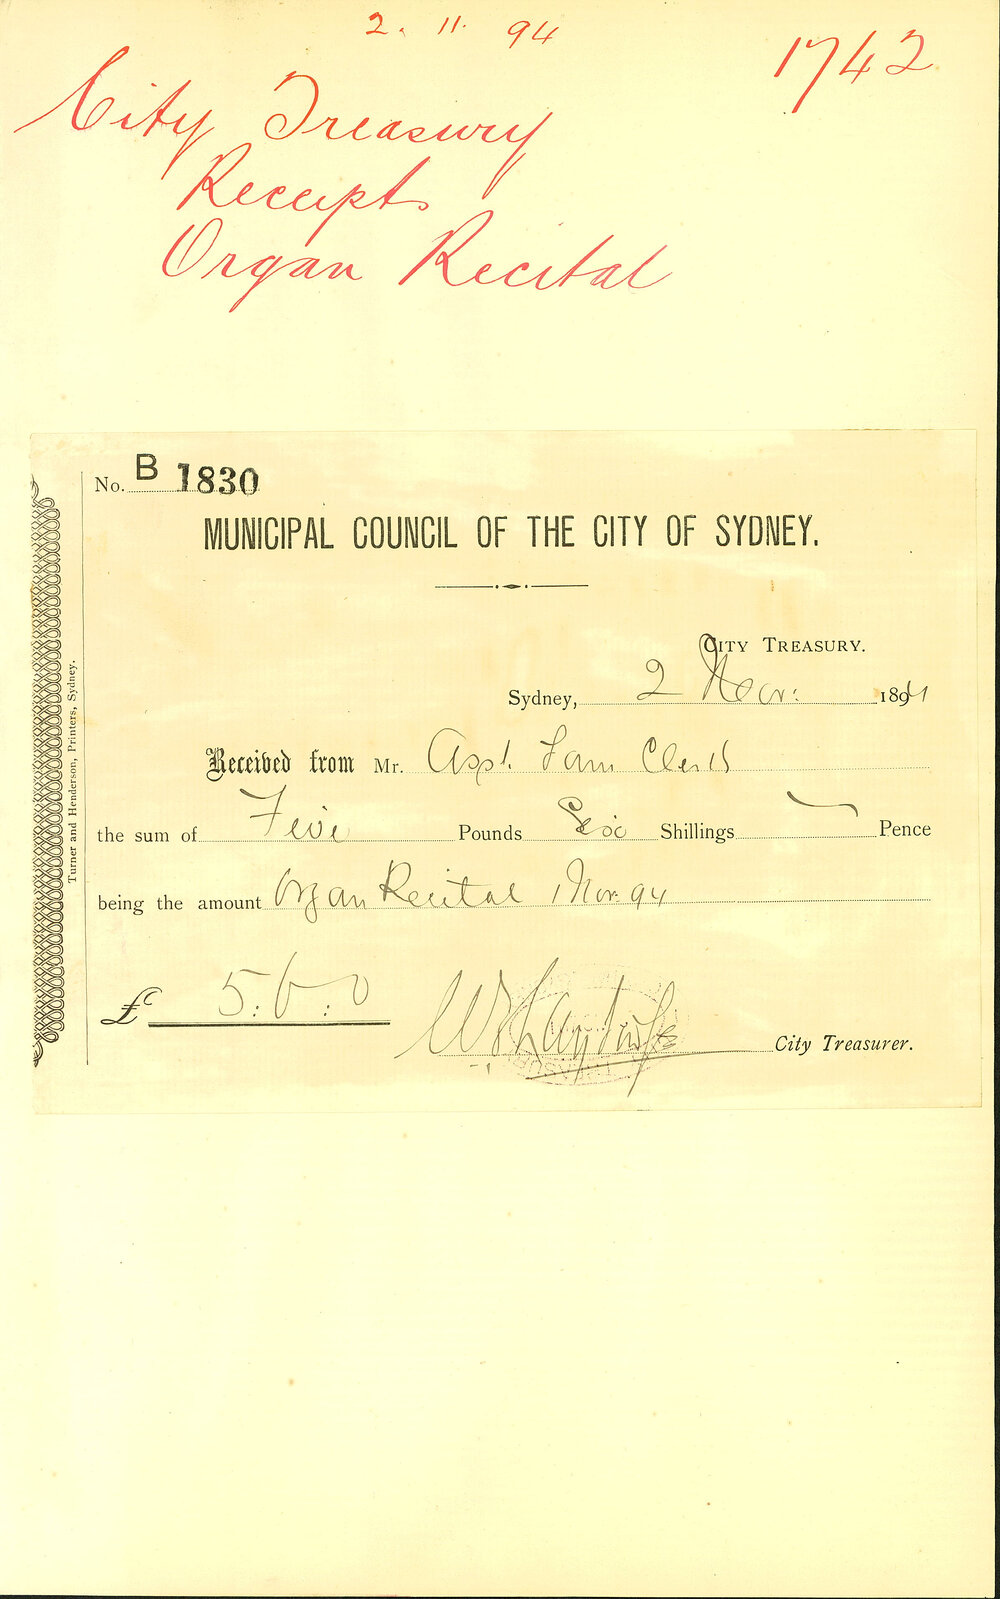 2. 11. 94
1742
City Treasury
Receipts
Organ Recital
No. B 1830
MUNICIPAL COUNCIL OF THE CITY OF SYDNEY.
CITY TREASURY.
Sydney, 2 Nov: 1894
Received from Mr. Asst. Town Clerk
the sum of Five Pounds Six Shillings — Pence
being the amount Organ Recital 1 Nov. 94
£ 5:6:0
City Treasurer.
Turner and Henderson, Printers, Sydney.